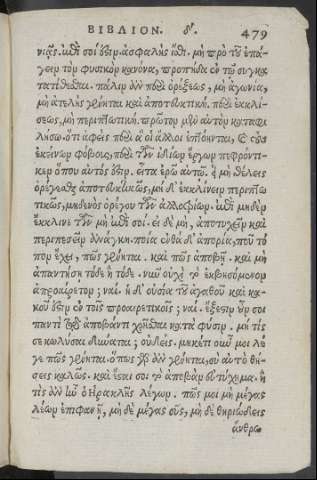 ΒΙΒΛΙΟΝ. δʹ. 479
νιᾷς. ἐπὶ σοί ἐστιν. ἀσφαλὴς ἴσθι. μὴ πρὸ τοῦ ἐπά-
γειν τὸν φυσικὸν κανόνα, προπήδα ἐν τῷ συγκα
τατίθεσθαι. πάλιν ἂν περὶ ὀρέξεως, μὴ ἀγωνία,
μὴ ἀτελὴς γένηται καὶ ἀποτευκτική. περὶ ἐκκλί-
σεως, μὴ περιπτωτική. πρῶτον μὲν αὐτὸν καταφι
λήσω. ὅτι ἀφεὶς περὶ ἃ οἱ ἄλλοι ἐπτόηνται, καὶ τοὺς
ἐκείνων φόβους, περὶ τῶν ἰδίων ἔργων πεφρόντι-
κεν ὅπου αὐτός ἐστιν. εἶτα ἐρῶ αὐτῷ. εἰ μὴ θέλεις
ὀρέγεσθαι ἀποτευκτικῶς, μὴ δ' ἐκκλίνειν περιπτω
τικῶς, μηδενὸς ὀρέγου τῶν ἀλλοτρίων. ἐπὶ μηδὲν
ἔκκλινε τῶν μὴ ἐπὶ σοί. εἰ δὲ μὴ, ἀποτυχεῖν καὶ
περιπεσεῖν ἀνάγκη. ποία ἐνθά δ' ἀπορία, ποῦ τό
πον ἔχει, πῶς γένηται. καὶ πῶς ἀποβῇ. καὶ μὴ
ἀπαντήσῃ τόδε ἢ τόδε. νῦν οὐχὶ τὸ ἐκβησόμενον
ἀπροαίρετον; ναί. ἡ δ' οὐσία τοῦ ἀγαθοῦ καὶ κα-
κοῦ ἔστιν ἐν τοῖς προαιρετικοῖς; ναί. ἔξεστιν οὖν σοι
παντὶ τῷ ἀποβάντι χρῆσθαι κατὰ φύσιν. μή τίς
σε κωλῦσαι δύναται; οὐδείς. μηκέτι οὖν μοι λέ
γε πῶς γένηται. ὅπως γὰρ ἂν γένηται, σὺ αὐτὸ θή-
σεις καλῶς. καὶ ἔσται σοι τὸ ἀποβὰν εὐτύχημα. ἢ
τίς ἂν ἦν ὁ Ηρακλῆς λέγων. πῶς μοι μὴ μέγας
λέων ἐπιφανῇ, μὴ δὲ μέγας σῦς, μὴ δὲ θηριώδεις
ἄνθρω